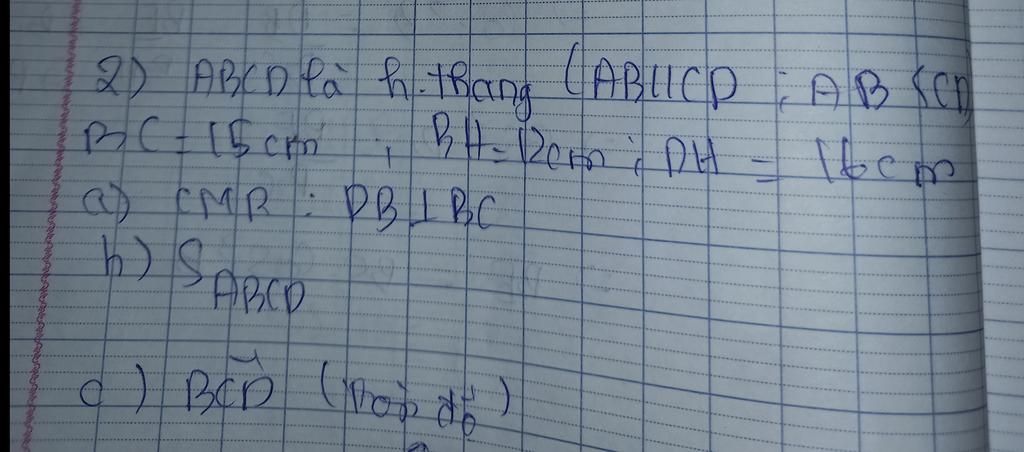 2) ABCD là h.thang (AB//CD ; AB < CD)
BC = 15 cm ; BH = 12cm ; DH = 16cm
a) CMR : DB ⊥ BC
b) S ABCD
c) BCD (độ)